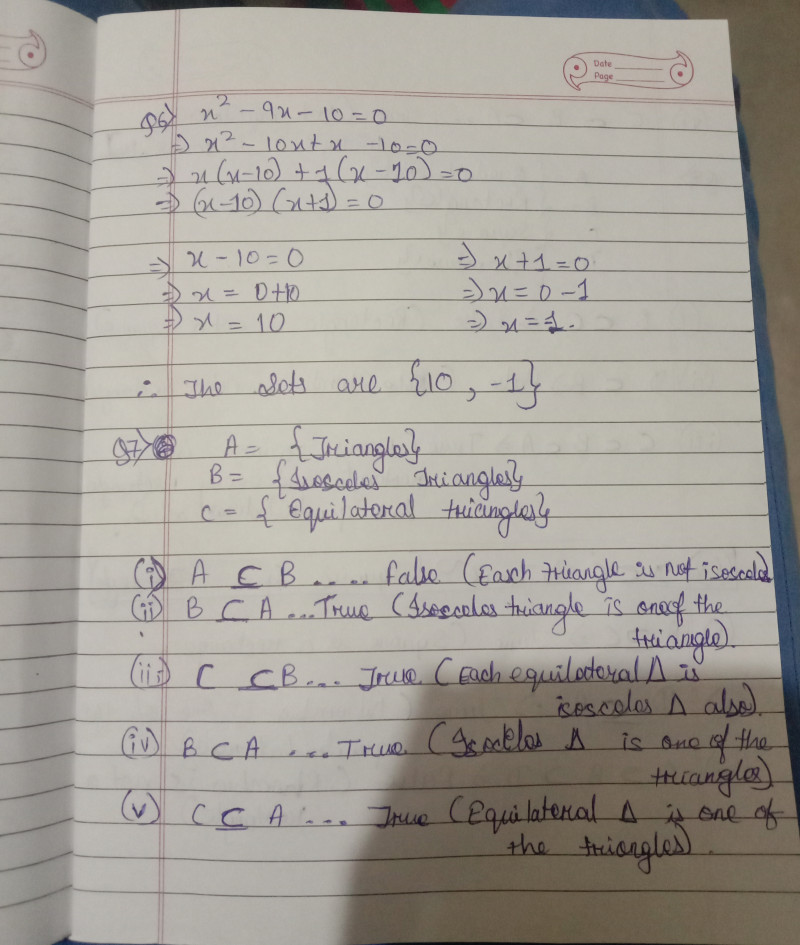 Date
Page
Q6) x² - 9x - 10 = 0
⇒ x² - 10x + x - 10 = 0
⇒ x(x-10) + 1(x-10) = 0
⇒ (x-10) (x+1) = 0
⇒ x - 10 = 0 ⇒ x + 1 = 0
⇒ x = 0+10 ⇒ x = 0 - 1
⇒ x = 10 ⇒ x = -1.
∴ The Sets are {10, -1}
Q7) A = {Triangles}
B = {Isosceles Triangles}
C = {Equilateral triangles}
(i) A ⊆ B .... false (Each triangle is not isosceles)
(ii) B ⊆ A ...True (Isosceles triangle is one of the
triangle).
(iii) C ⊆ B... True (Each equilateral Δ is
isosceles Δ also).
(iv) B ⊂ A ... True (Isoceles Δ is one of the
triangles)
(v) C ⊆ A ... True (Equilateral Δ is one of
the triangles).